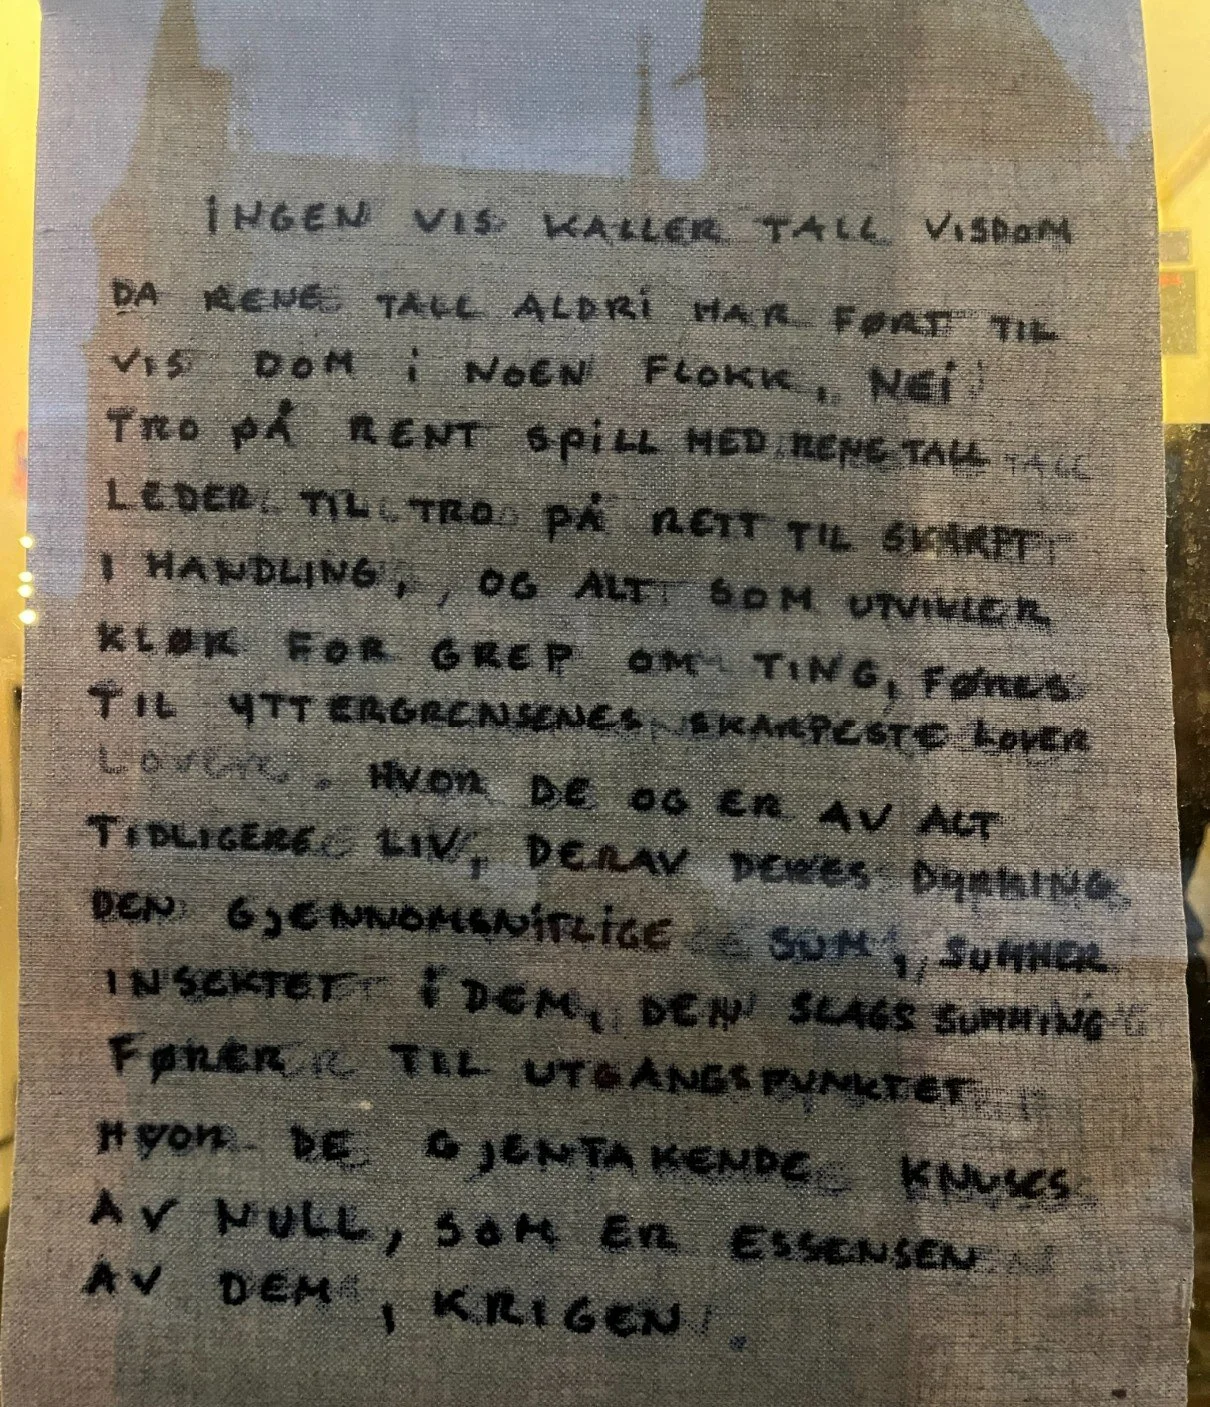 INGEN VIS KALLER TALL VISDOM
DA RENE TALL ALDRI HAR FØRT TIL
VIS DOM I NOEN FLOKK, NEI
TRO PÅ RENT SPILL MED RENE TALL TALL
LEDER TIL TRO PÅ RETT TIL SKARPT
I HANDLING, OG ALT SOM UTVIKLER
KLØKT FOR GREP OM TING, FØRES
TIL YTTERGRENSENES SKARPESTE LOVER
LOVER. HVOR DE OG ER AV ALT
TIDLIGERE LIV, DERAV DERES DYRKING
DEN GJENNOMSNITLIGE SUM, SUMMER
INSEKTET I DEM, DEN SLAGS SUMMING
FØRER TIL UTGANGSPUNKTET
HVOR DE GJENTAKENDE KNUSES
AV NULL, SOM ER ESSENSEN
AV DEM, KRIGEN.